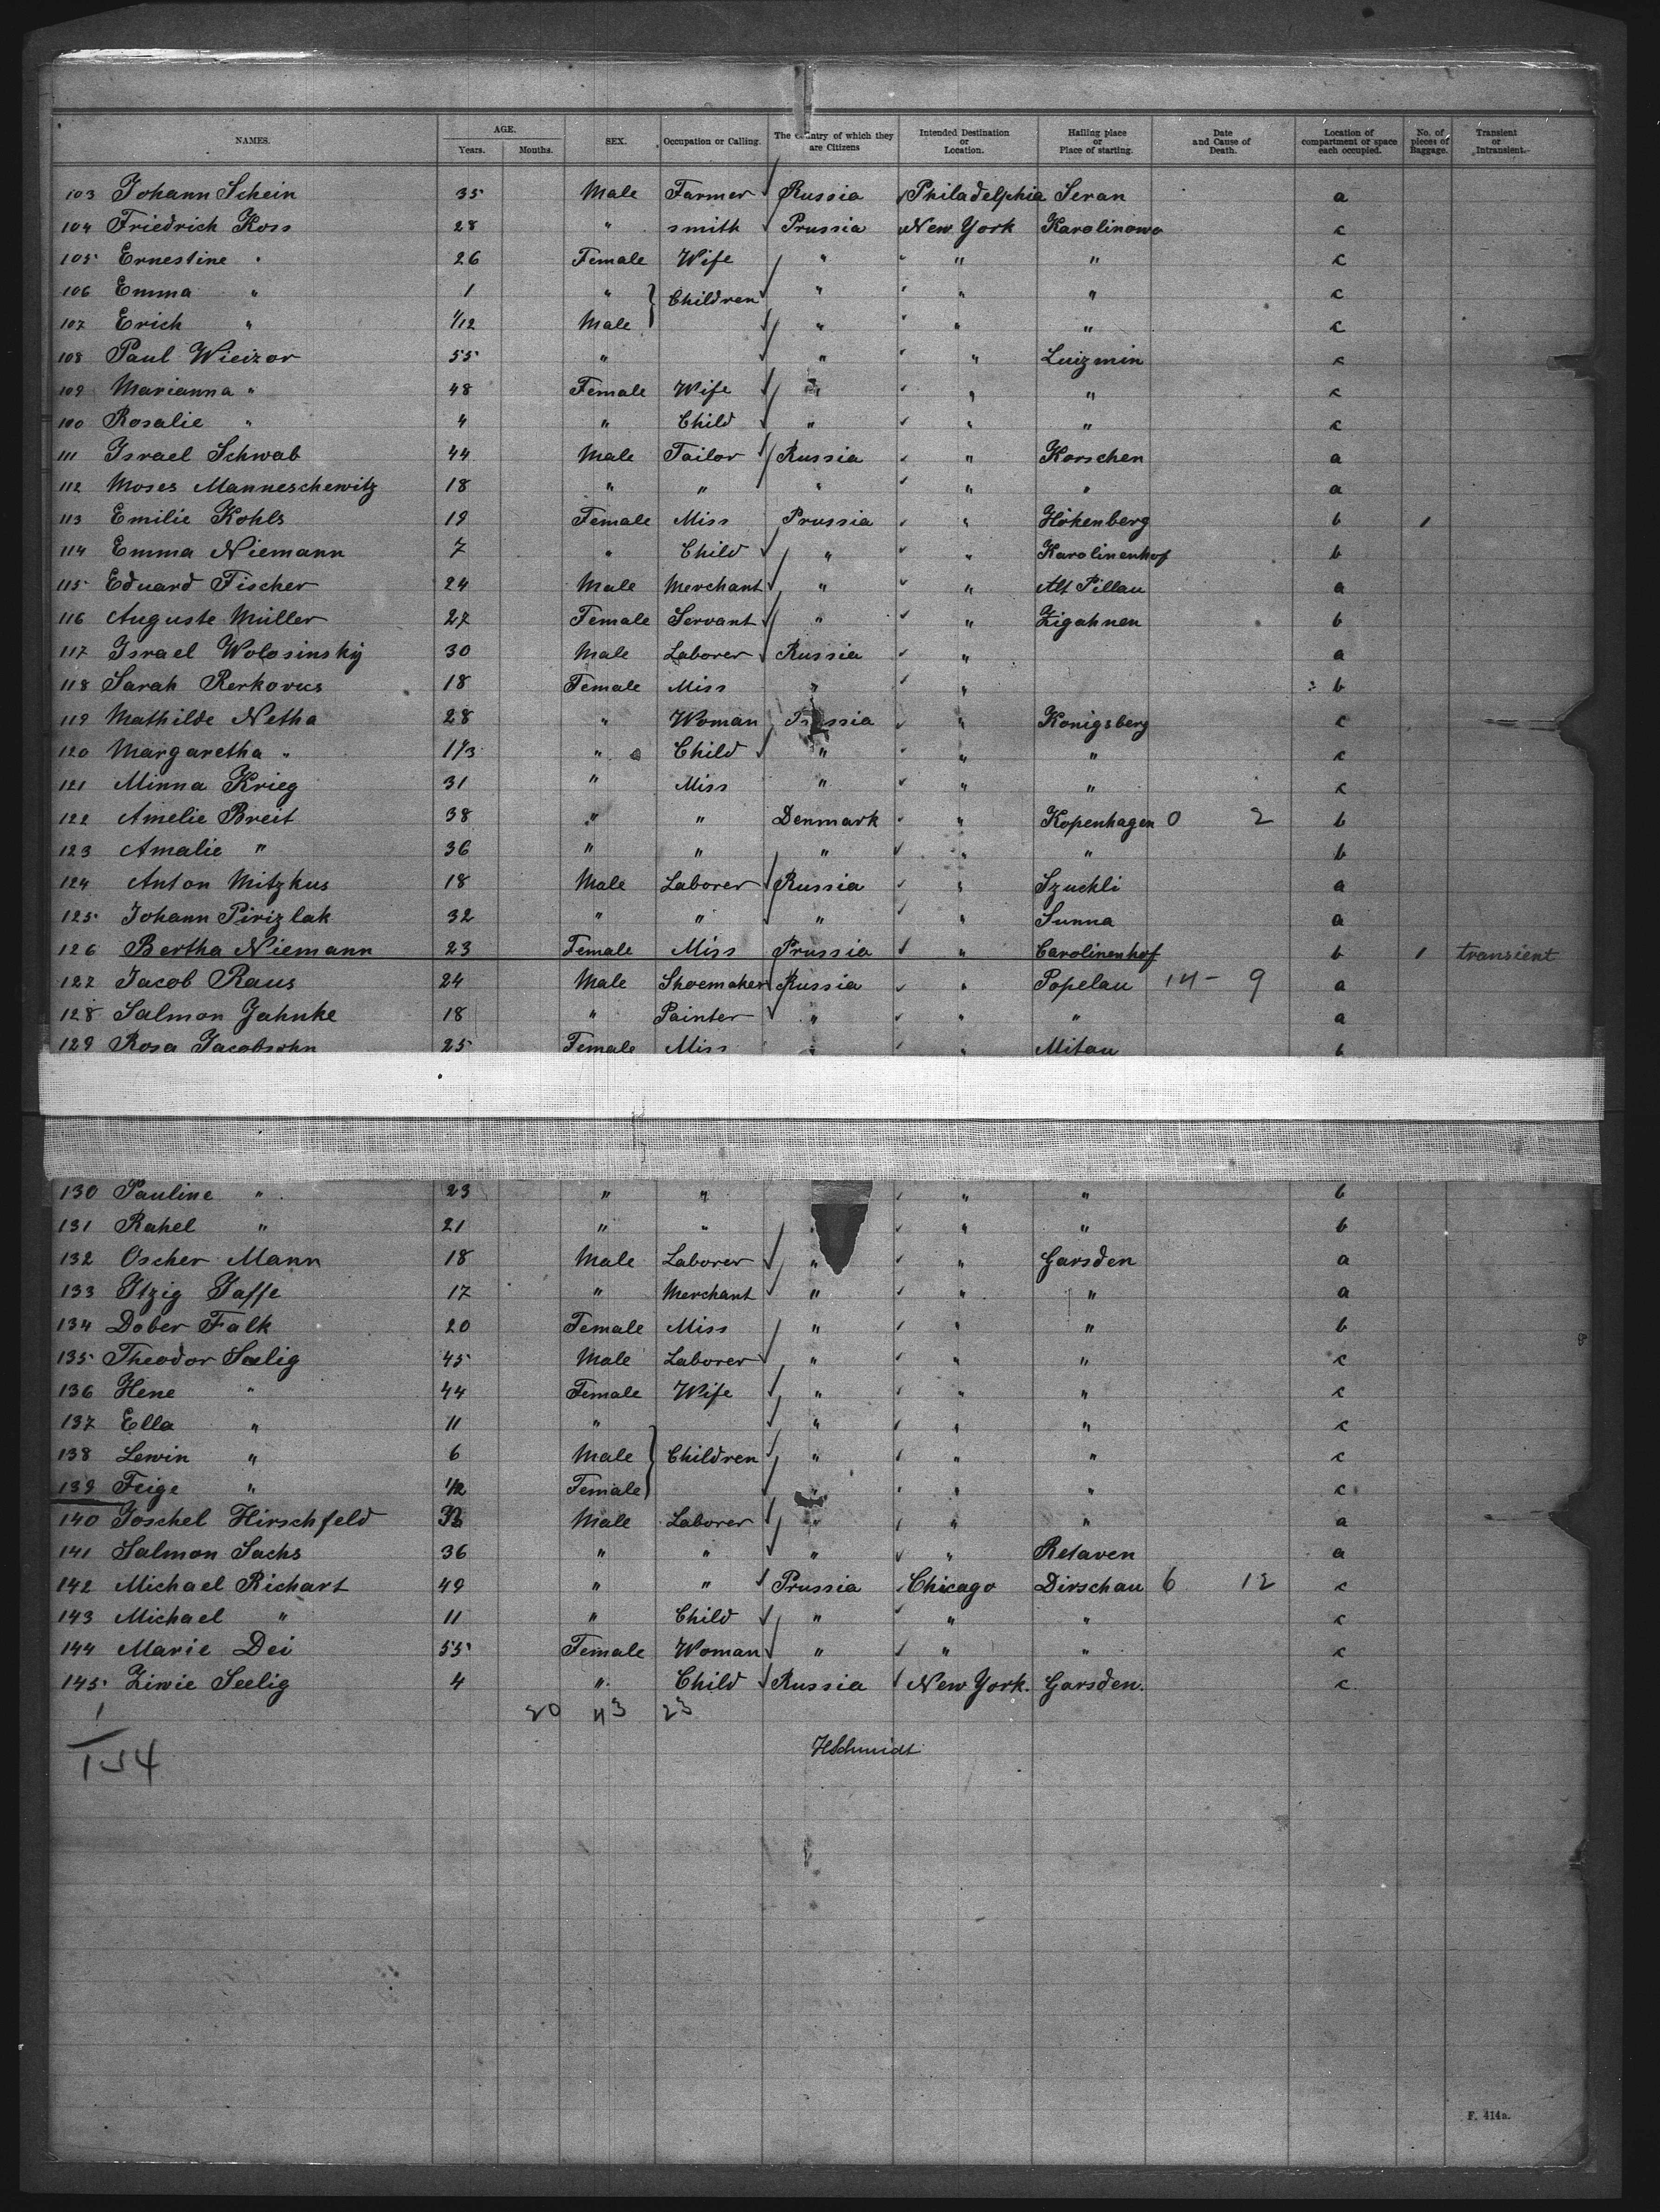 NAMES. AGE. Years. Months. SEX. Occupation or Calling. The Country of which they are Citizens Intended Destination or Location. Hailing place or Place of starting. Date and Cause of Death. Location of compartment or space each occupied. No. of pieces of Baggage. Transient or Intransient.
103 Johann Schein 35 Male Farmer Russia Philadelphia Seran a
104 Friedrich Koss 28 " smith Prussia New York Karolinowo c
105 Ernestine " 26 Female Wife " " " " c
106 Emma " 1 " Children " " " " c
107 Erich " 1/12 Male " " " " c
108 Paul Wieizor 55 " " " " Luizmin c
109 Marianna " 48 Female Wife " " " " c
100 Rosalie " 4 " Child " " " " c
111 Israel Schwab 44 Male Tailor Russia " " Korschen a
112 Moses Manneschewitz 18 " " " " " " a
113 Emilie Kohls 19 Female Miss Prussia " " Höhenberg b 1
114 Emma Niemann 7 " Child " " " Karolinenhof b
115 Eduard Fischer 24 Male Merchant " " " Alt Pillau a
116 Auguste Müller 27 Female Servant " " " Zigahnen b
117 Israel Wolosinsky 30 Male Laborer Russia " " a
118 Sarah Rerkovus 18 Female Miss " " " b
119 Mathilde Netha 28 " Woman Prussia " " Konigsberg c
120 Margaretha " 1/3 " Child " " " " c
121 Minna Krieg 31 " Miss " " " " c
122 Amelie Breit 38 " " Denmark " " Kopenhagen 0 2 b
123 Amalie " 36 " " " " " " b
124 Anton Mitzkus 18 Male Laborer Russia " " Szuckli a
125 Johann Pirizlak 32 " " " " " Sunna a
126 Bertha Niemann 23 Female Miss Prussia " " Carolinenhof b 1 transient
127 Jacob Raus 24 Male Shoemaker Russia " " Popelau 14 - 9 a
128 Salmon Jahnke 18 " Painter " " " " a
129 Rosa Jacobsohn 25 Female Miss " " " Mitau b
130 Pauline " 23 " " " " " b
131 Rahel " 21 " " " " " " b
132 Oscher Mann 18 Male Laborer " " " Garsden a
133 Itzig Jaffe 17 " Merchant " " " " a
134 Dober Falk 20 Female Miss " " " " b
135 Theodor Seelig 45 Male Laborer " " " " c
136 Hene " 44 Female Wife " " " " c
137 Ella " 11 " " " " " c
138 Lewin " 6 Male Children " " " " c
139 Feige " 1/2 Female " " " " c
140 Joschel Hirschfeld Male Laborer " " " " a
141 Salmon Sachs 36 " " " " " Retaven a
142 Michael Richart 49 " " Prussia Chicago Dirschau 6 12 c
143 Michael " 11 " Child " " " c
144 Marie Dei 55 Female Woman " " " c
145 Ziwie Seelig 4 " Child Russia New York. Garsden. c
1 20 43 23
HSchmidt
F. 414a.